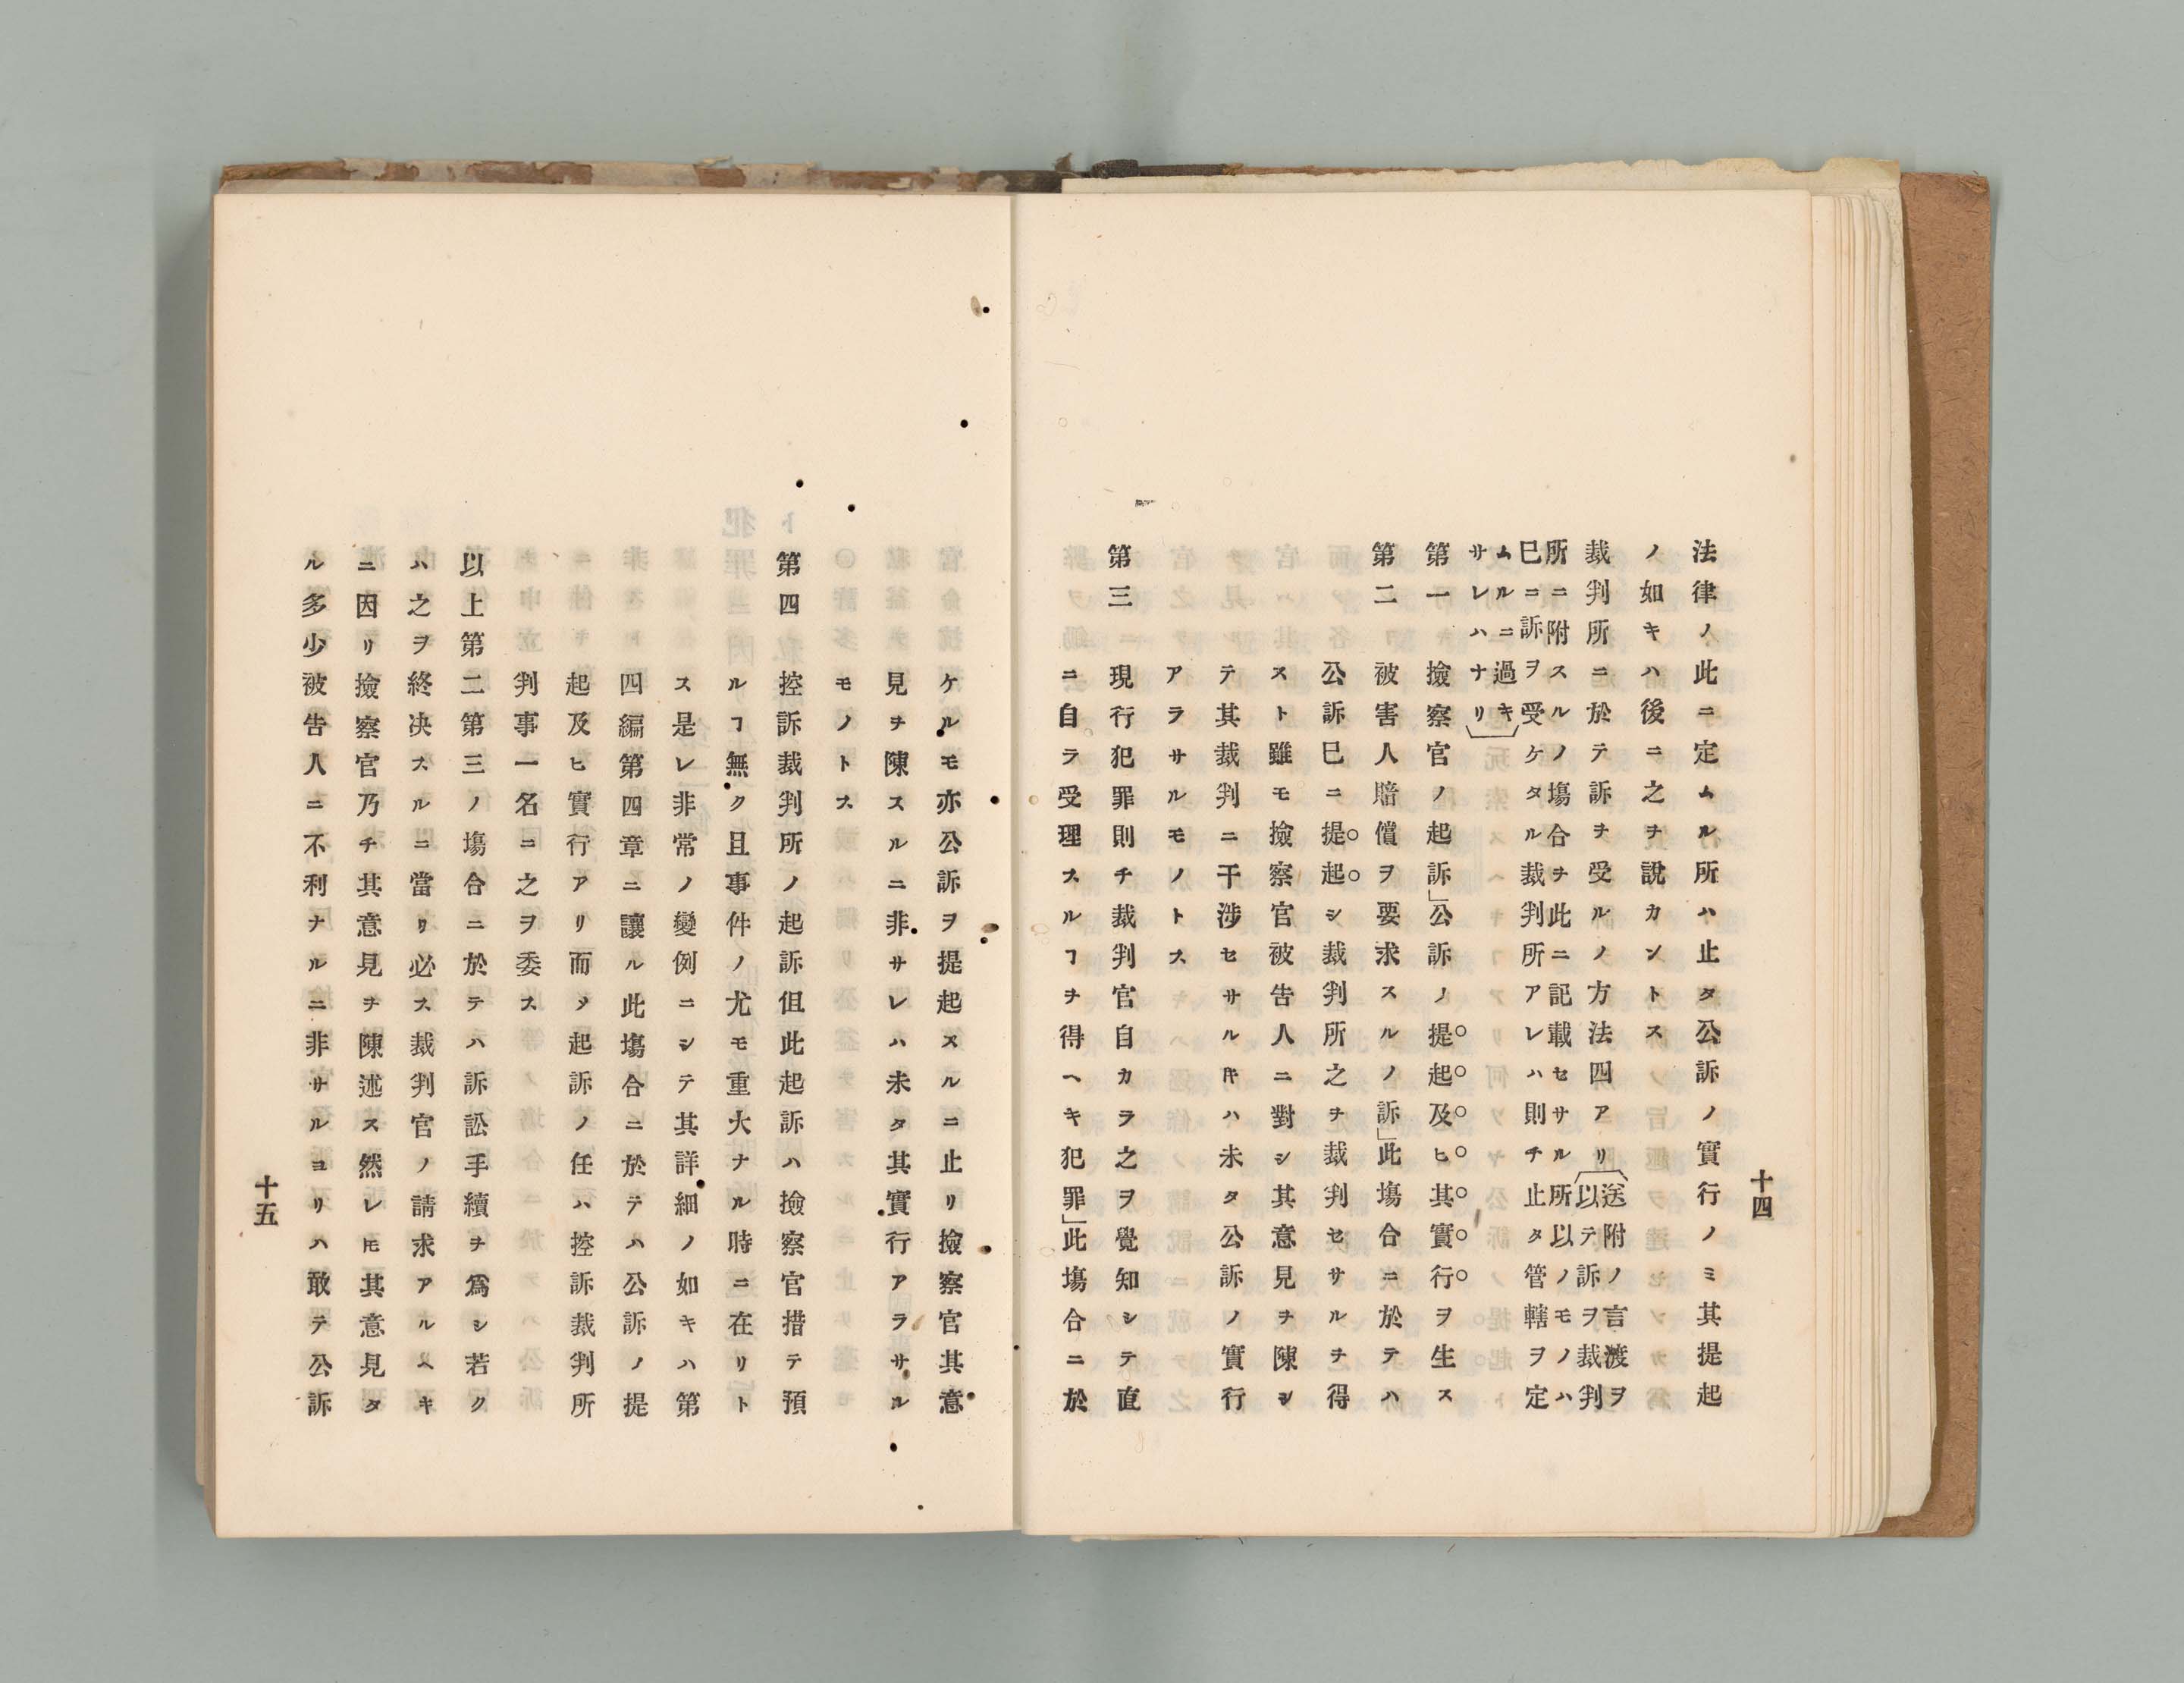 十四
法律ノ此ニ定ムル所ハ止タ公訴ノ實行ノミ其提起
ノ如キハ後ニ之ヲ說カントス
裁判所ニ於テ訴ヲ受ルノ方法四アリ
送附ノ言渡ヲ
以テ訴ヲ裁判
所ニ附スルノ塲合ヲ此ニ記載セサル所以ノモノハ
巳ニ訴ヲ受ケタル裁判所アレハ則チ止タ管轄ヲ定
ムルニ過キ
サレハナリ
第一 撿察官ノ起訴」公訴ノ提起及ヒ其實行ヲ生ス
第二 被害人賠償ヲ要求スルノ訴」此塲合ニ於テハ
公訴巳ニ提起シ裁判所之ヲ裁判セサルヲ得
スト雖モ撿察官被告人ニ對シ其意見ヲ陳シ
テ其裁判ニ干涉セサルキハ未タ公訴ノ實行
アラサルモノトス
第三 現行犯罪則チ裁判官自カラ之ヲ覺知シテ直
ニ自ラ受理スルヿヲ得ヘキ犯罪」此塲合ニ於
ケルモ亦公訴ヲ提起スルニ止リ撿察官其意
見ヲ陳スルニ非サレハ未タ其實行アラサル
モノトス
第四 控訴裁判所ノ起訴但此起訴ハ撿察官措テ預
ルヿ無ク且事件ノ尤モ重大ナル時ニ在リト
ス是レ非常ノ變例ニシテ其詳細ノ如キハ第
四編第四章ニ讓ル此塲合ヒニ於テハ公訴ノ提
起及ヒ實行アリ而〆起訴ノ任ハ控訴裁判所
判事一名ニ之ヲ委ス
以上第二第三ノ塲合ニ於テハ訴訟手續ヲ爲シ若ク
ハ之ヲ終決スルニ當リ必ス裁判官ノ請求アルヘキ
ニ因リ撿察官乃チ其意見ヲ陳述ス然レ𪜈其意見タ
ル多少被告人ニ不利ナルニ非サルヨリハ敢テ公訴
十五